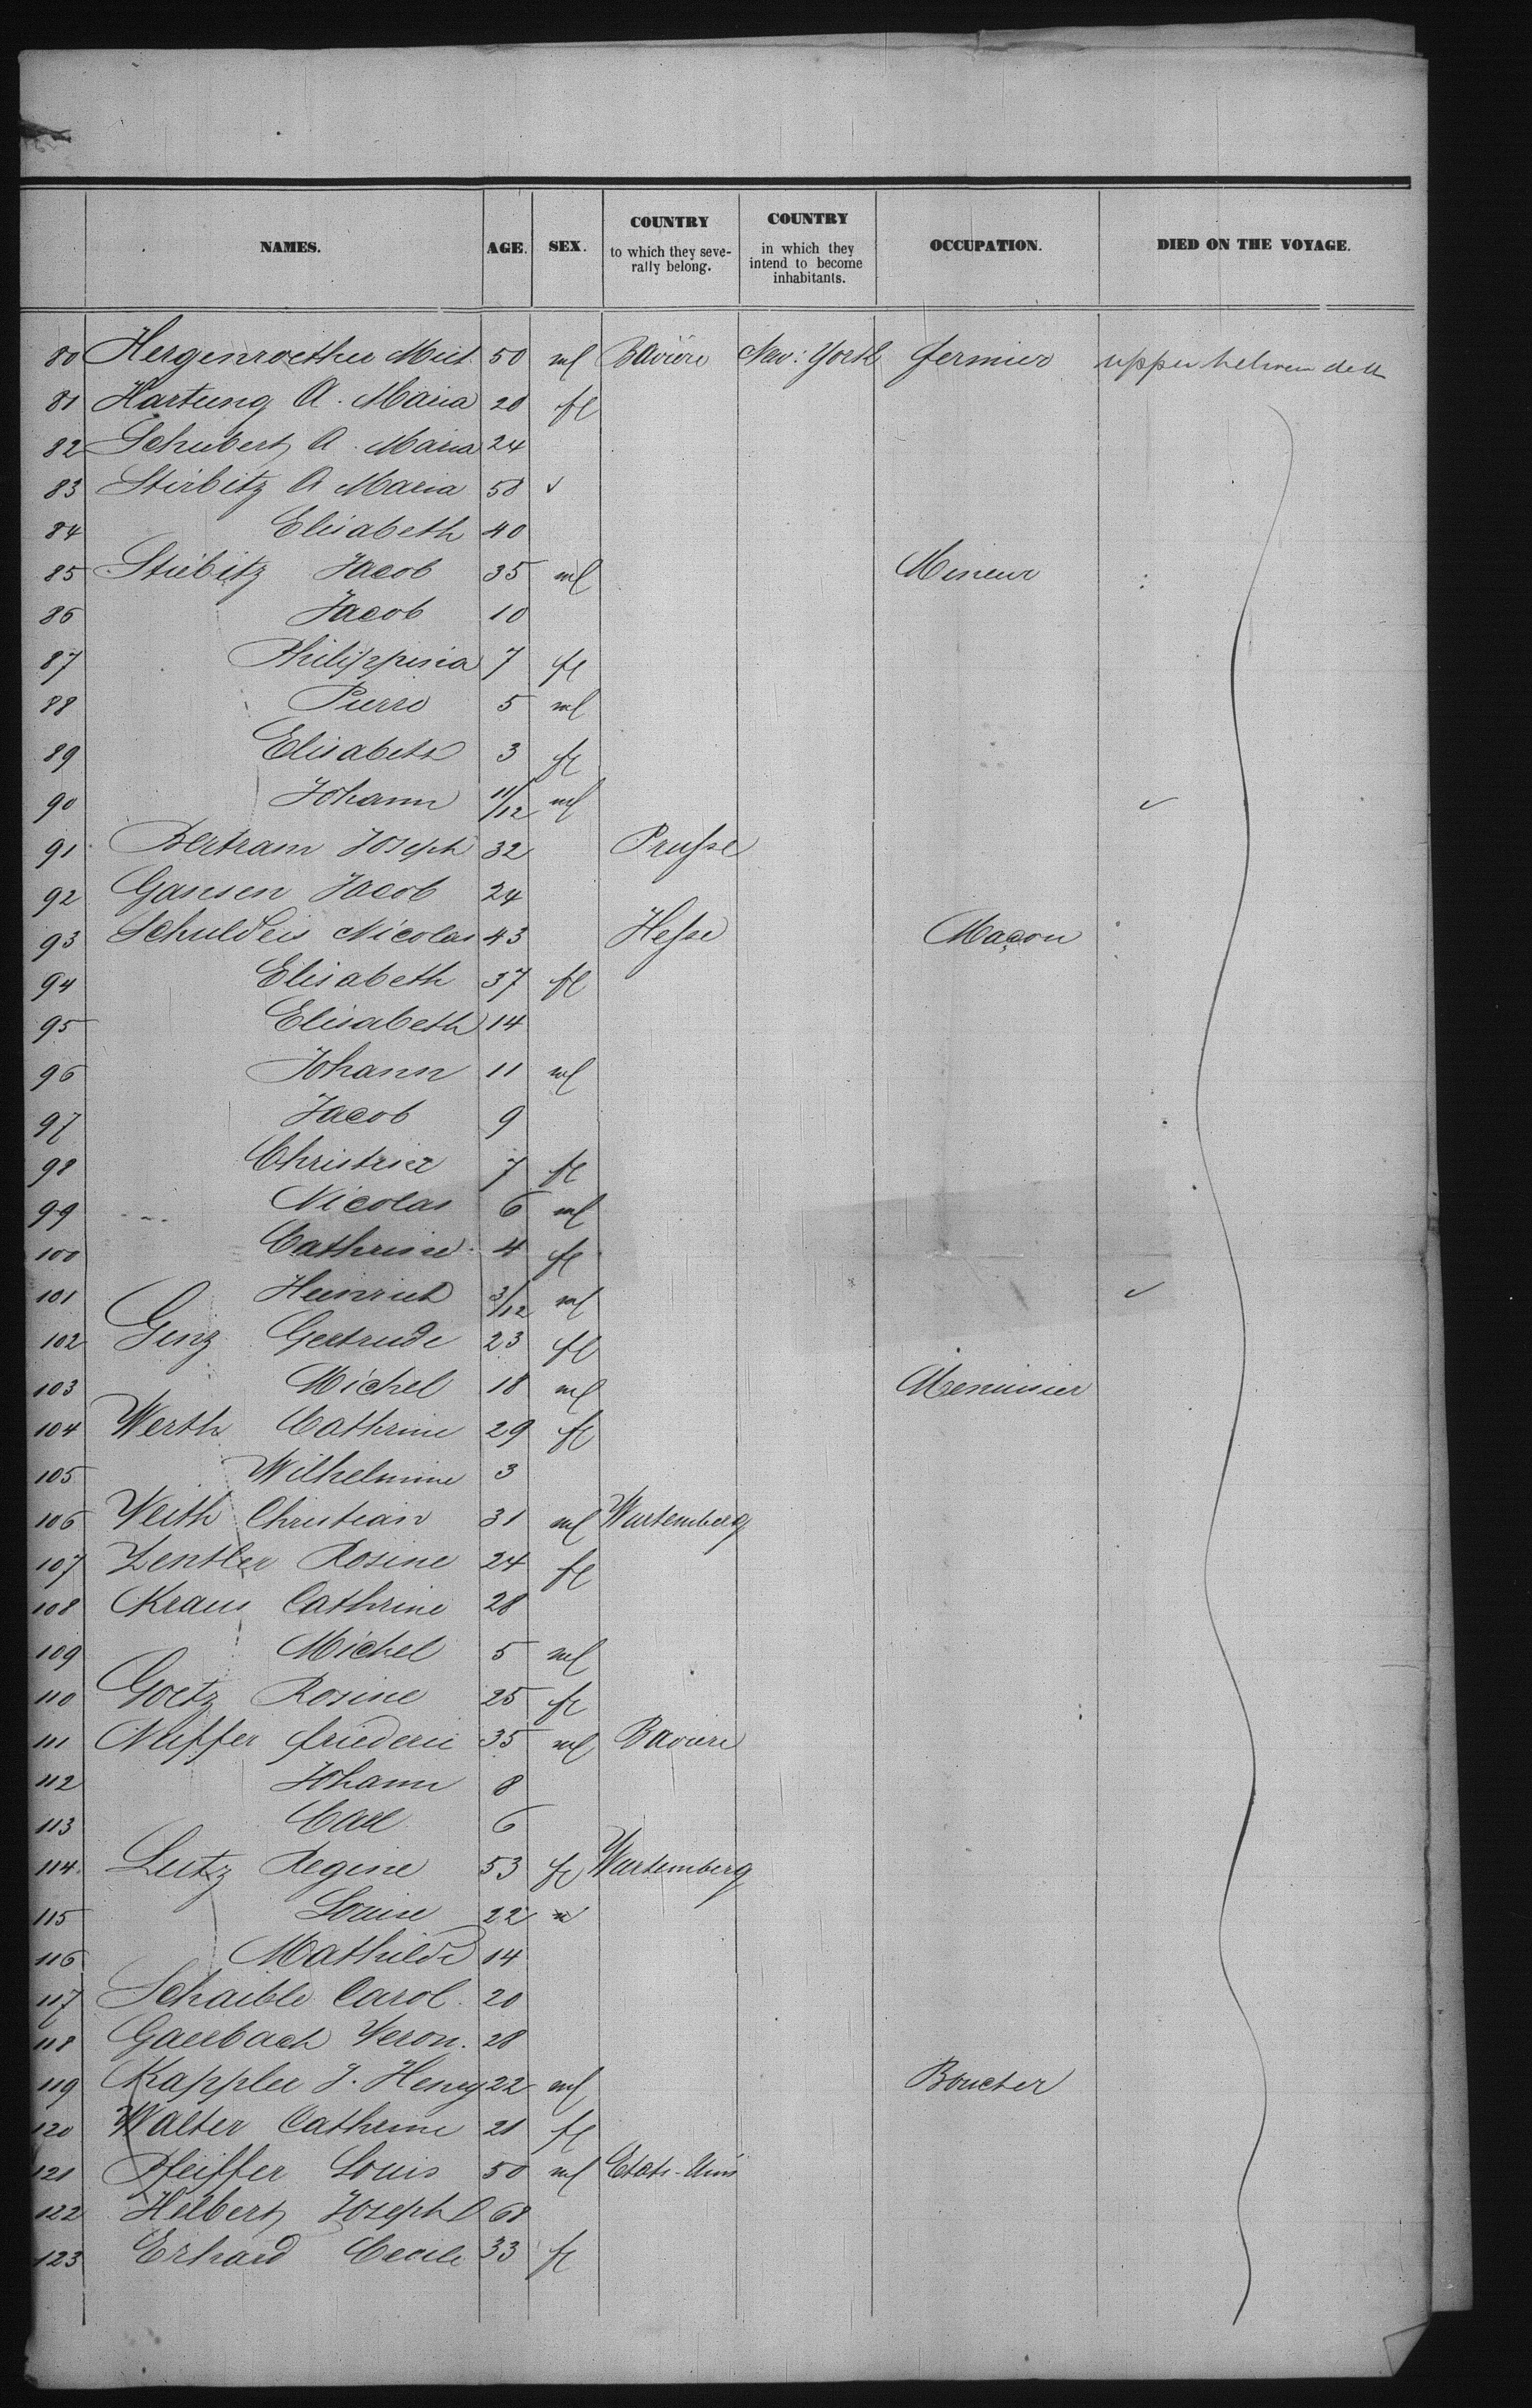 NAMES. AGE. SEX. COUNTRY to which they severally belong. COUNTRY in which they intend to become inhabitants. OCCUPATION. DIED ON THE VOYAGE.
80 Hergenroether Mich 50 ml Bavière New: York fermier upper between deck
81 Hartung A. Maria 20 fl
82 Schubert A. Maria 24
83 Stirbitz A Maria 58 ✓
84 Elisabeth 40
85 Stiebitz Jacob 35 ml Mineur
86 Jacob 10
87 Philippina 7 fl
88 Pierre 5 ml
89 Elisabeth 3 fl
90 Johann 11/12 ml ✓
91 Bertram Joseph 32 Prusse
92 Gansen Jacob 24
93 Schuldeis Nicolas 43 Hesse Maçon
94 Elisabeth 37 fl
95 Elisabeth 14
96 Johann 11 ml
97 Jacob 9
98 Christine 7 fl
99 Nicolas 6 ml
100 Cathrine 4 fl
101 Heinrich 3/12 ml ✓
102 Genz Gertrude 23 fl
103 Michel 18 ml Menuisier
104 Werth Cathrine 29 fl
105 Wilhelmine 3
106 Veith Christian 31 ml Wurtemberg
107 Zentler Rosine 24 fl
108 Kraus Cathrine 28
109 Michel 5 ml
110 Goetz Rosine 25 fl
111 Neiffer friederic 35 ml Baviere
112 Johann 8
113 Carl 6
114 Lutz Regine 53 fl Wurtemberg
115 Louise 22
116 Mathilde 14
117 Schaible Carol. 20
118 Gaerbach Veron. 28
119 Kappler J. Henry 22 ml Boucher
120 Walter Catherine 21 fl
121 Pfeiffer Louis 50 ml Etats-Unis
122 Helbert Joseph 68
123 Erhard Cecile 33 fl